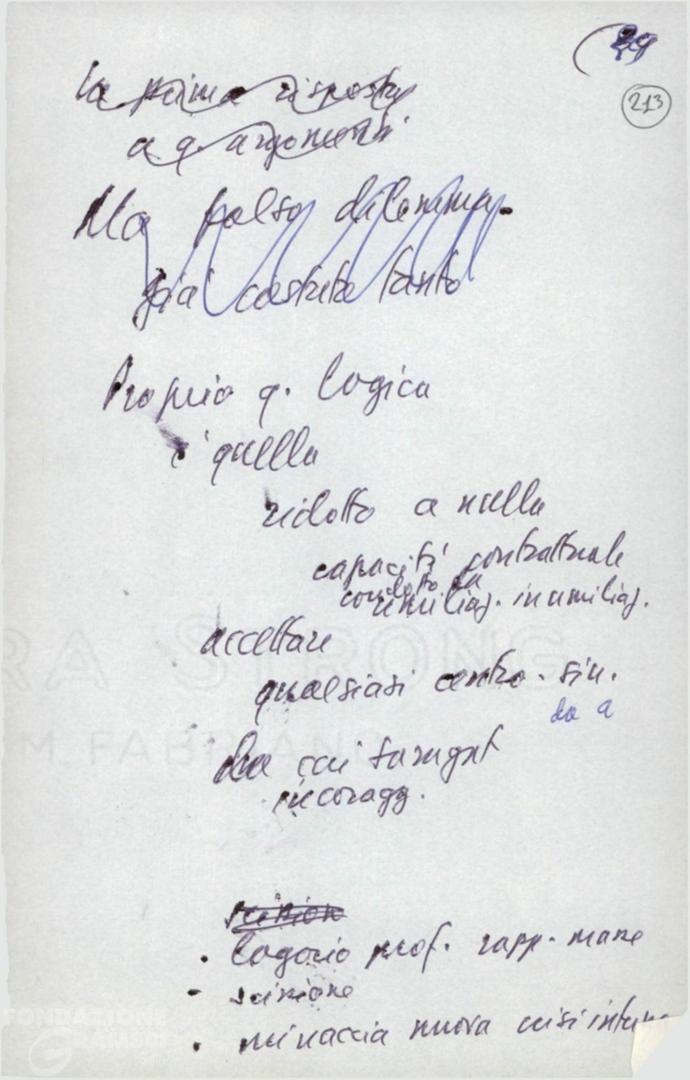 29
213
La prima risposta
a q. argomenti
Ma falso dilemma.
già costato tanto
Proprio q. logica
è quella
ridotto a nulla
capacità contrattuale
condotto da
umiliaz. in umiliaz.
accettare
qualsiasi centro-sin.
da a
da cui
incoragg.
scissione
• logorio prof. rapp. masse
- scissione
• minaccia nuova crisi interna
ERA STRONG
M. FABRIANO
FONDAZIONE
GRAMSCI